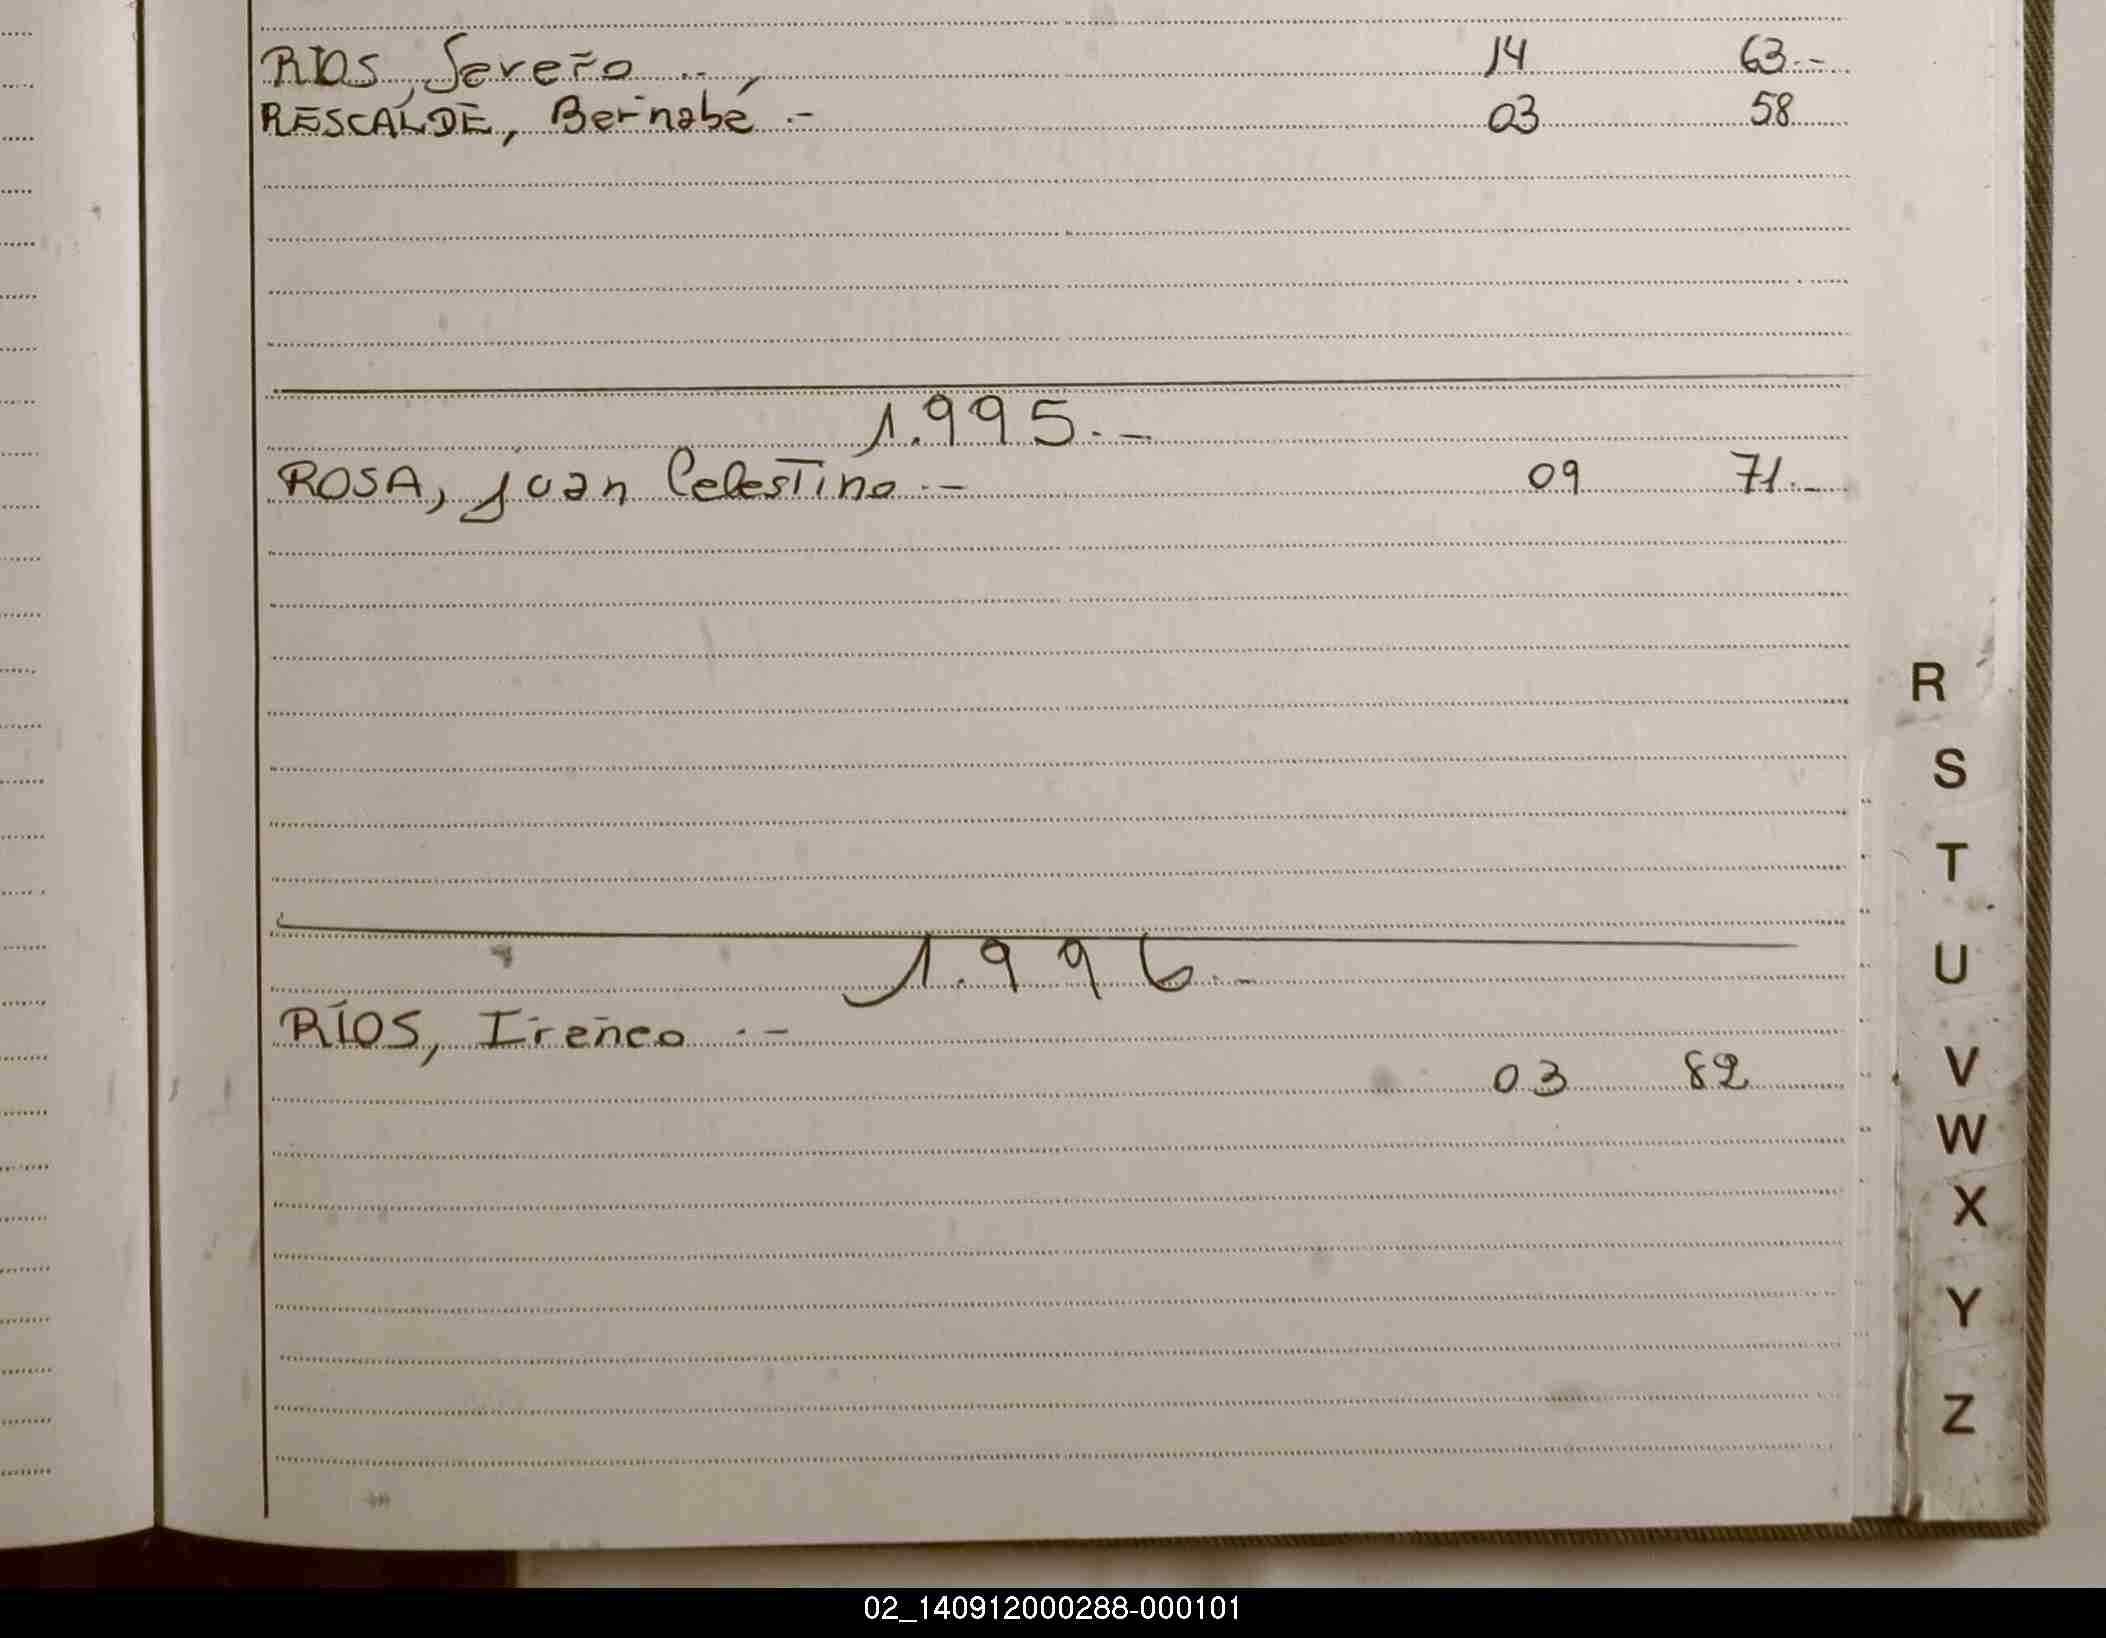 RÍOS, Severo .-. 14 63.-
RESCALDE, Bernabé .- 03 58
1.995.-
ROSA, Juan Celestino .- 09 71.-
1.996.-
RÍOS, Ireneo .-
03 82
R
S
T
U
V
W
X
Y
Z
02_140912000288-000101